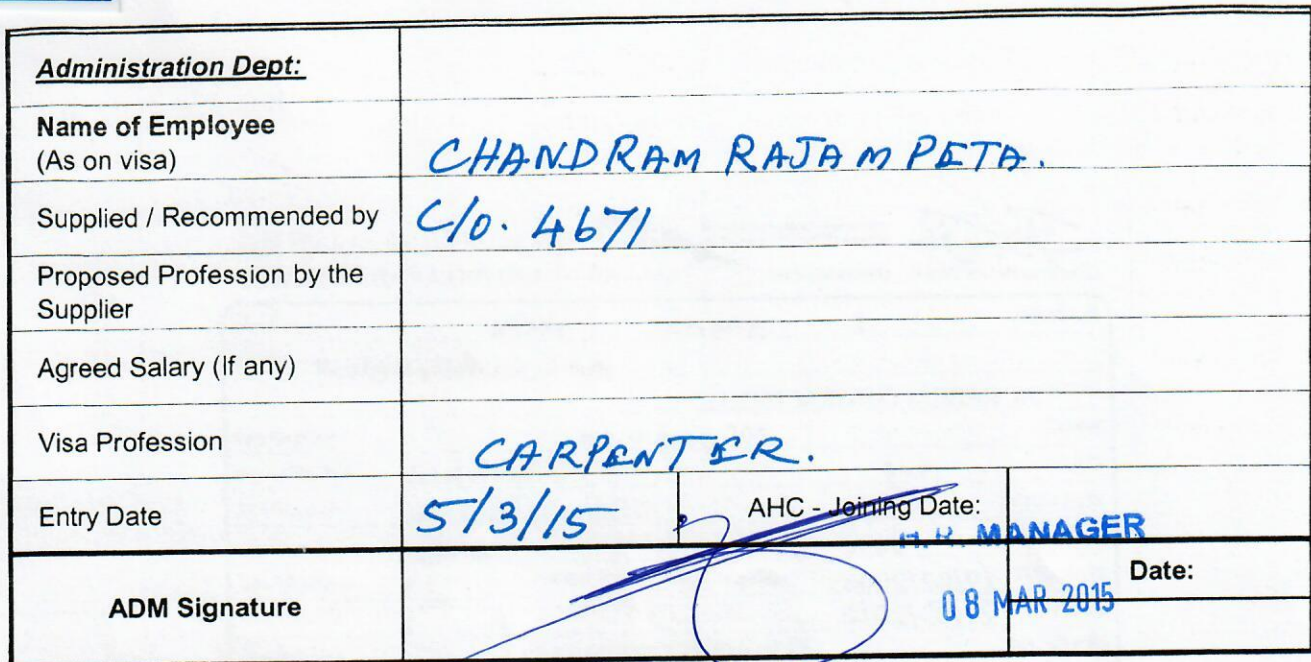 Administration Dept:
Name of Employee
(As on visa)
CHANDRAM RAJAMPETA.
Supplied / Recommended by
C/o. 4671
Proposed Profession by the
Supplier
Agreed Salary (If any)
Visa Profession
CARPENTER.
Entry Date
5/3/15
AHC - Joining Date:
H. R. MANAGER
ADM Signature
08 MAR 2015
Date: